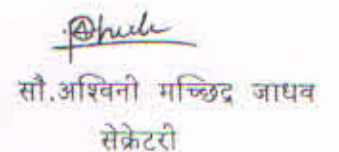 सौ.अश्विनी मच्छिद्र जाधव
सेक्रेटरी